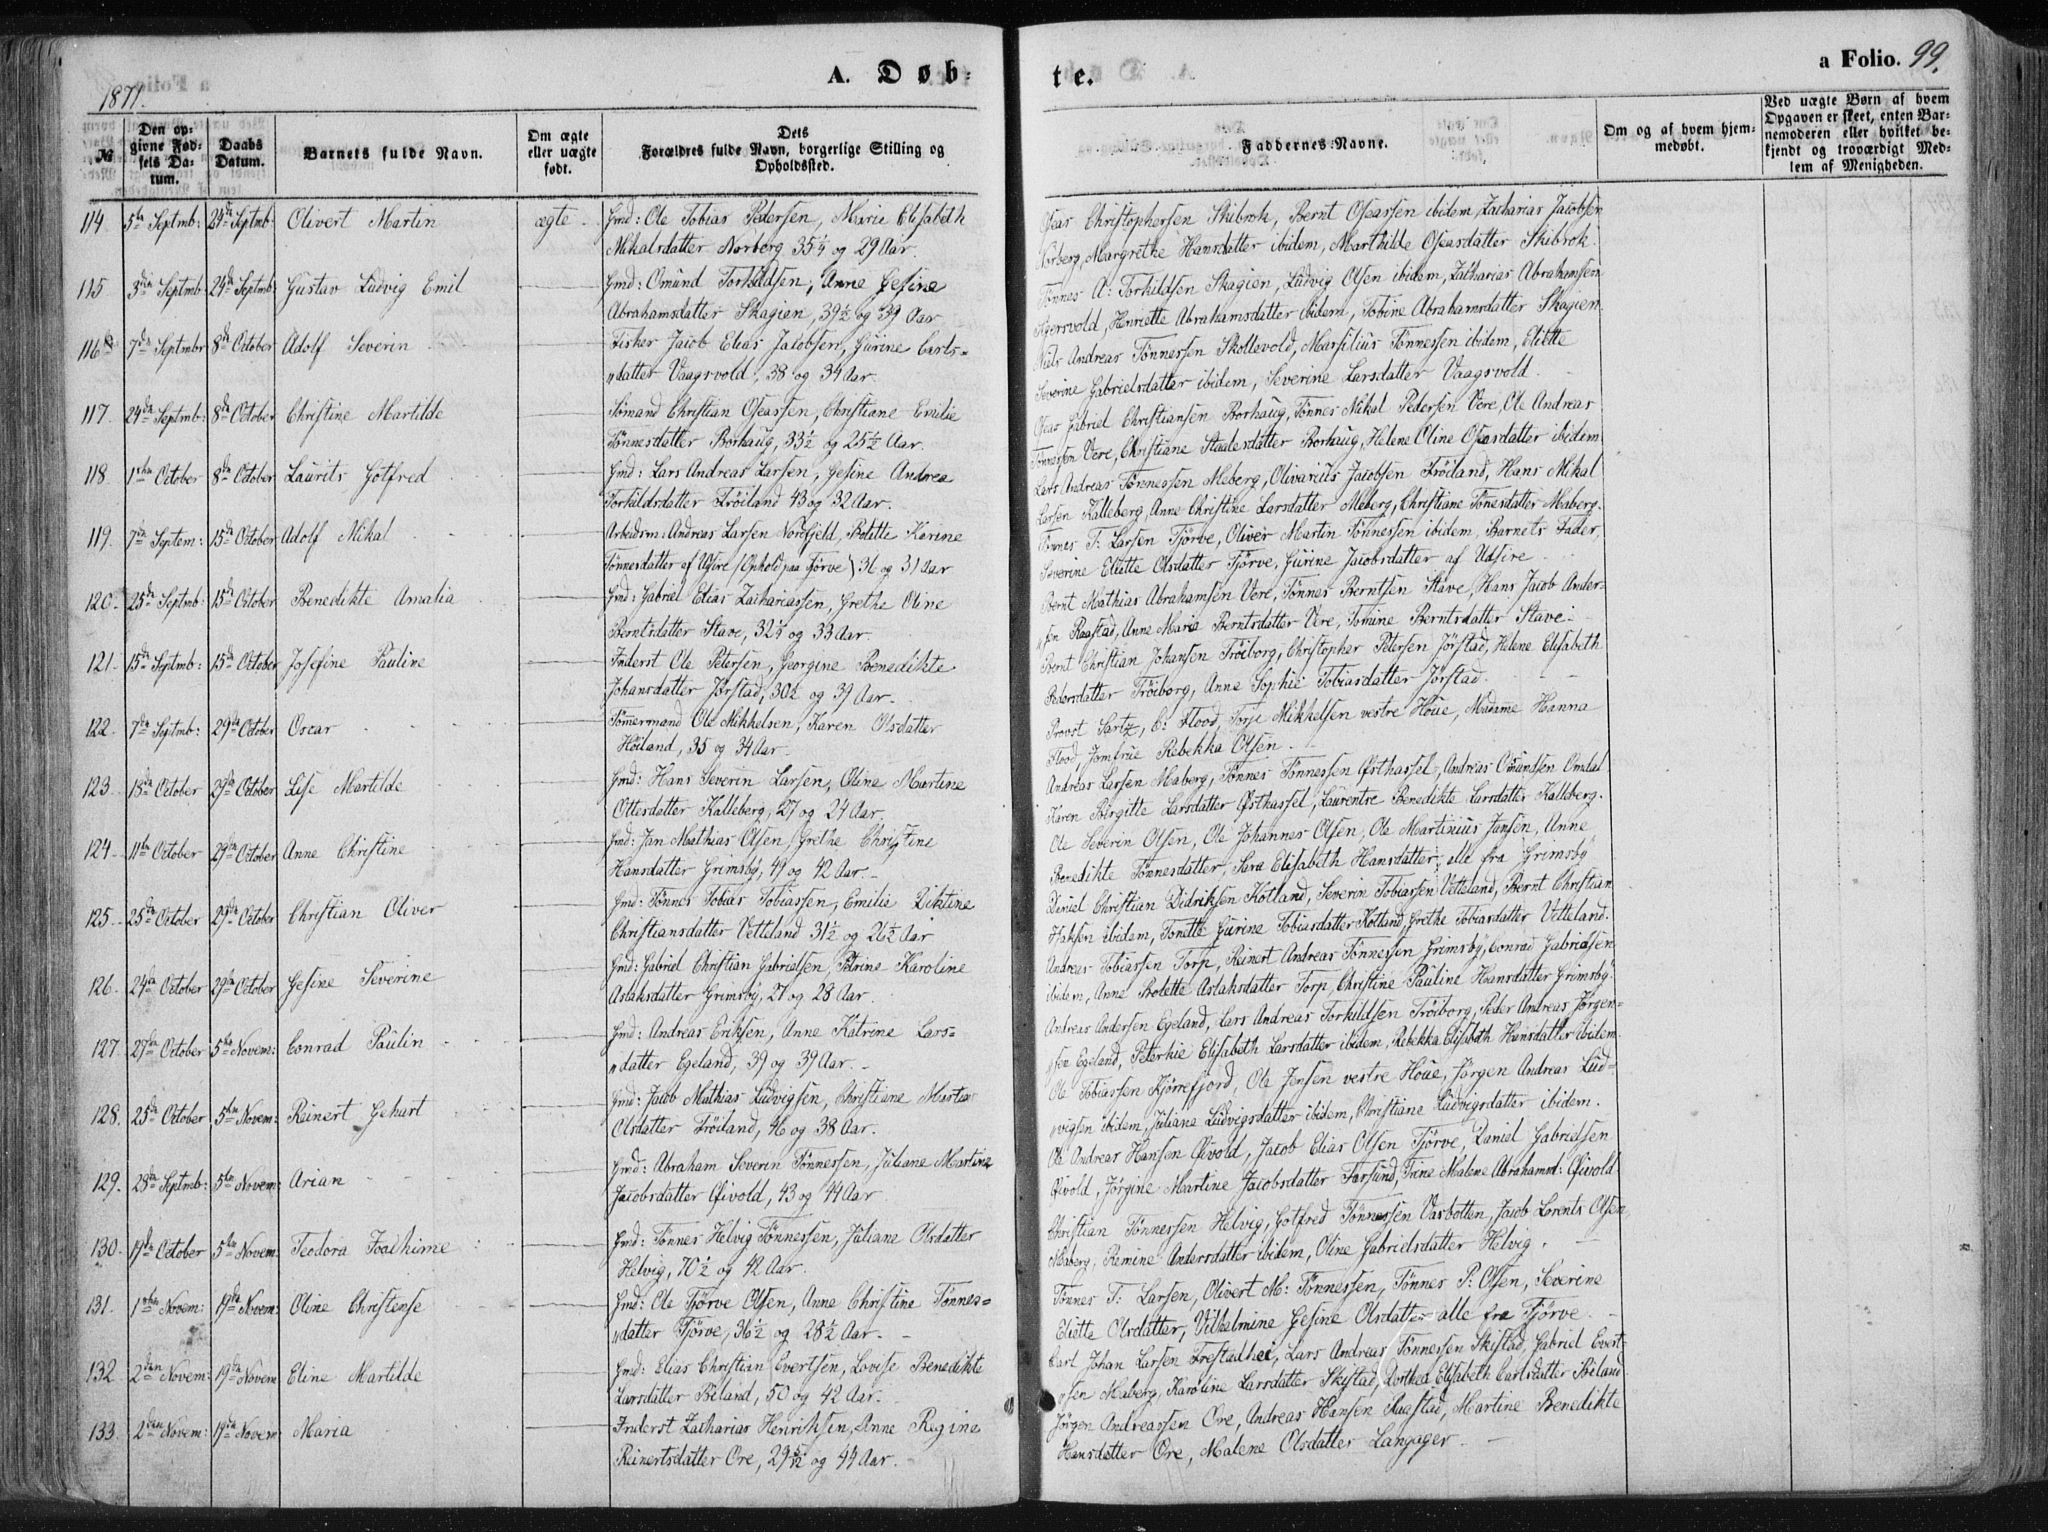 A. Døb-
te.
a Folio. 99.
1871.
№
Den op-
givne Fød-
sels Da-
tum.
Daabs
Datum.
Barnets fulde Navn.
Om ægte
eller uægte
født.
Dets
Forældres fulde Navn, borgerlige Stilling og
Opholdssted.
Faddernes Navne.
Om og af hvem hjem-
medøbt.
Ved uægte Børn af hvem
Opgaven er skeet, enten Bar-
nemoderen eller hvilket be-
kjendt og troværdigt Med-
lem af Menigheden.
114 5te Septmb: 24de Septmb: Olivert Martin ægte Gmd: Ole Tobias Pedersen, Marie Elisabeth
Mikalsdatter Norberg 35 1/4 og 29 Aar.
Oseas Christophersen Skibrok, Bernt Oseassen ibidem, Zacharias Jacobsen
Norberg, Margrethe Hansdatter ibidem, Marthilde Oseasdatter Skibrok.
115 3die Septmb: 24de Septmb: Gustav Ludvig Emil Gmd: Omund Torkildsen, Anne Gesine
Abrahamsdatter Skagien, 39 1/2 og 39 Aar
Tönnes A: Torkildsen Skagien, Ludvig Olsen ibidem, Zacharias Abrahamsen
Agersvold, Henriette Abrahamsdatter ibidem, Tobine Abrahamsdatter Skagien.
116 7de Septmbr 8de October Adolf Severin Fisker Jacob Elias Jacobsen, Gurine Carls-
"datter Vaagsvold, 38 og 34 Aar.
Niels Andreas Tönnessen Skollevold, Marsilius Tönnessen ibidem, Eliette
Severine Gabrielsdatter ibidem, Severine Larsdatter Vaagsvold.
117. 24de Septmb: 8de October Christine Martilde Sömand Christian Oseassen, Christiane Emilie
Tönnesdatter Borhaug, 33 1/2 og 25 1/2 Aar.
Oseas Gabriel Christiansen Borhaug, Tönnes Mikal Pedersen Vere, Ole Andreas
Tönnessen Vere, Christiane Staalesdatter Borhaug, Helene Oline Oseasdatter ibidem.
118. 1ste October 8de October Laurits Gotfred Gmd: Lars Andreas Larsen, Gesine Andrea
Torkildsdatter Fröiland 43 og 32 Aar.
Lars Andreas Tönnessen Meberg, Olivarius Jacobsen Fröiland, Hans Mikal
Larsen Kalleberg, Anne Christine Larsdatter Meberg, Christiane Tönesdatter Maberg.
119. 7de Septem: 15de October Adolf Mikal Arbeidsm: Andreas Larsen Nordfjeld, Bolette Karine
Tönnesdatter af Udsire (Ophold paa Tjörve) 36 og 31 Aar
Tönnes T: Larsen Tjörve, Oliver Martin Tönnessen ibidem, Barnets Fader,
Severine Eliette Olsdatter Tjörve, Gurine Jacobsdatter af Udsire
120. 25de Septmb: 15de October Benedikte Amalia Gmd: Gabriel Elias Zachariassen, Grethe Oline
Berntsdatter Stave, 32 1/4 og 33 Aar.
Bernt Mathias Abrahamsen Vere, Tönnes Berntsen Stave, Hans Jacob Ander-
"sen Raastad, Anne Maria Berntsdatter Vere, Tomine Berntsdatter Stave
121. 15de Septmb: 15de October Josefine Pauline Inderst Ole Petersen, Georgine Benedikte
Johansdatter Jörstad, 30 1/2 og 39 Aar.
Bernt Christian Johansen Fröiborg, Christopher Petersen Jörstad, Helene Elisabeth
Pedersdatter Fröiborg, Anne Sophie Tobiasdatter Jörstad.
122. 7de Septmb: 29de October Oscar Tömermand Ole Mikkelsen, Karen Olsdatter
Höiland, 35 og 34 Aar.
Provst Sartz, C: Flood, Torje Mikkelsen vestre Höue, Madame Hanna
Flood, Jomfrue Rebekka Olsen.
123. 18de October 29de October Lise Martilde Gmd: Hans Severin Larsen, Oline Martine
Ottesdatter Kalleberg, 27 og 24 Aar.
Andreas Larsen Maberg, Tönnes Tönnessen Østhassel, Andreas Omundsen Omdal
Karen Birgitte Larsdatter Østhassel, Laurentze Benedikte Larsdatter Kalleberg.
124. 11te October 29de October Anne Christine Gmd: Jan Mathias Olsen, Grethe Christine
Hansdatter Grimsby, 49 og 42 Aar.
Ole Severin Olsen, Ole Johannes Olsen, Ole Martinius Jansen, Anne
Benedikte Tönnesdatter, Sara Elisabeth Hansdatter, alle fra Grimsby
125. 25de October 29de October Christian Oliver Gmd: Tönnes Tobias Tobiassen, Emilie Diktine
Christiansdatter Vetteland 31 1/2 og 26 1/2 Aar
Daniel Christian Didriksen Kotland, Severin Tobiassen Vetteland, Bernt Christian
Isaksen ibidem, Tonette Gurine Tobiasdatter Kotland, Grethe Tobiasdatter Vetteland.
126. 24de October 29de October Gesine Severine Gmd: Gabriel Christian Gabrielsen, Petrine Karoline
Aslaksdatter Grimsby, 27 og 28 Aar.
Andreas Tobiassen Torp, Reinert Andreas Tönnesen Grimsby, Conrad Gabrielsen
ibidem, Anne Bolette Aslaksdatter Torp, Christine Pauline Hansdatter Grimsby.
127. 27de October 5te Novem: Conrad Paulin Gmd: Andreas Eriksen, Anne Katrine Lars-
"datter Egeland, 39 og 39 Aar.
Andreas Andersen Egeland, Lars Andreas Torkildsen Fröiborg, Peder Andreas Jörgen-
"sen Egeland, Peterkie Elisabeth Larsdatter ibidem, Rebekka Elisabeth Hansdatter ibidem.
128. 25de October 5te Novem: Reinert Gehart Gmd: Jacob Mathias Ludvigsen, Christiane Martine
Olsdatter Fröiland, 46 og 38 Aar.
Ole Tobiassen Kjörrefjord, Ole Jensen vestre Höue, Jörgen Andreas Lud-
"vigsen ibidem, Juliane Ludvigsdatter ibidem, Christiane Ludvigsdatter ibidem.
129. 28de Septmb: 5te Novem: Arian Gmd: Abraham Severin Tönnessen, Juliane Martine
Jacobsdatter Øivold, 43 og 44 Aar.
Ole Andreas Hansen Øivold, Jacob Elias Olsen Tjörve, Daniel Gabrielsen
Øivold, Jörgine Martine Jacobsdatter Farsund, Trine Malene Abrahamsd: Øivold.
130. 19de October 5te Novem: Teodora Joachime Gmd: Tönnes Helvig Tönnessen, Juliane Olsdatter
Helvig, 70 1/2 og 42 Aar.
Christian Tönnessen Helvig, Gotfred Tönnessen Vasbotten, Jacob Lorents Olsen
Maberg, Remine Andersdatter ibidem, Oline Gabrielsdatter Helvig.
131. 1ste Novem: 19de Novem: Oline Christense Gmd: Ole Tjörve Olsen, Anne Christine Tönnes-
"datter Tjörve, 36 1/2 og 28 1/2 Aar.
Tönnes T: Larsen, Olivert M: Tönnessen, Tönnes P: Olsen, Severine
Eliette Olsdatter, Vilhelmine Gesine Olsdatter alle fra Tjörve.
132 2den Novem: 19de Novem Eline Martilde Gmd: Elias Christian Evertsen, Lovise Benedikte
Larsdatter Böiland, 50 og 42 Aar.
Carl Johan Larsen Frestadhei, Lars Andreas Tönnessen Skistad, Gabriel Evert-
"sen Maberg, Karoline Larsdatter Skistad, Dorthea Elisabeth Carlsdatter Böiland
133. 2den Novem: 19de Novem Maria Inderst Zacharias Henriksen, Anne Regine
Reinertsdatter Ore, 29 5/12 og 44 Aar.
Jörgen Andreassen Ore, Andreas Hansen Raastad, Martine Benedikte
Hansdatter Ore, Malene Olsdatter Langager.